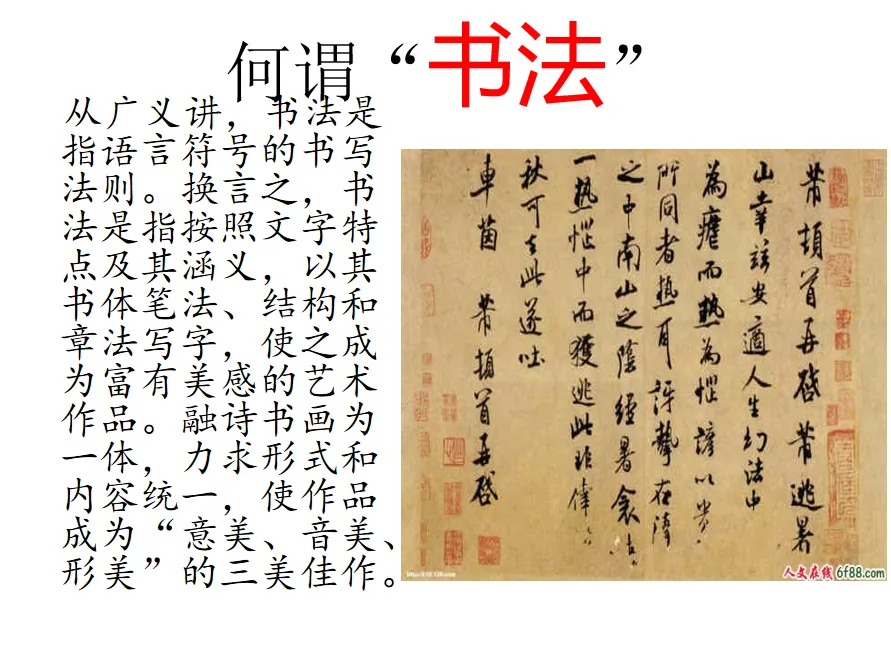 何谓“书法”
从广义讲，书法是
指语言符号的书写
法则。换言之，书
法是指按照文字特
点及其涵义，以其
书体笔法、结构和
章法写字，使之成
为富有美感的艺术
作品。融诗书画为
一体，力求形式和
内容统一，使作品
成为“意美、音美、
形美”的三美佳作。
芾頓首再啓芾逃暑
山幸茲安適人生幻法中
為瘧而熱為惱諺以貴
所同者熱耳訝挚在
之中南山之陰經暑衾
一熱惱中而獲逃此非偉
秋可去此遂吐
車茵 芾頓首再啓
人文在线 6f88.com